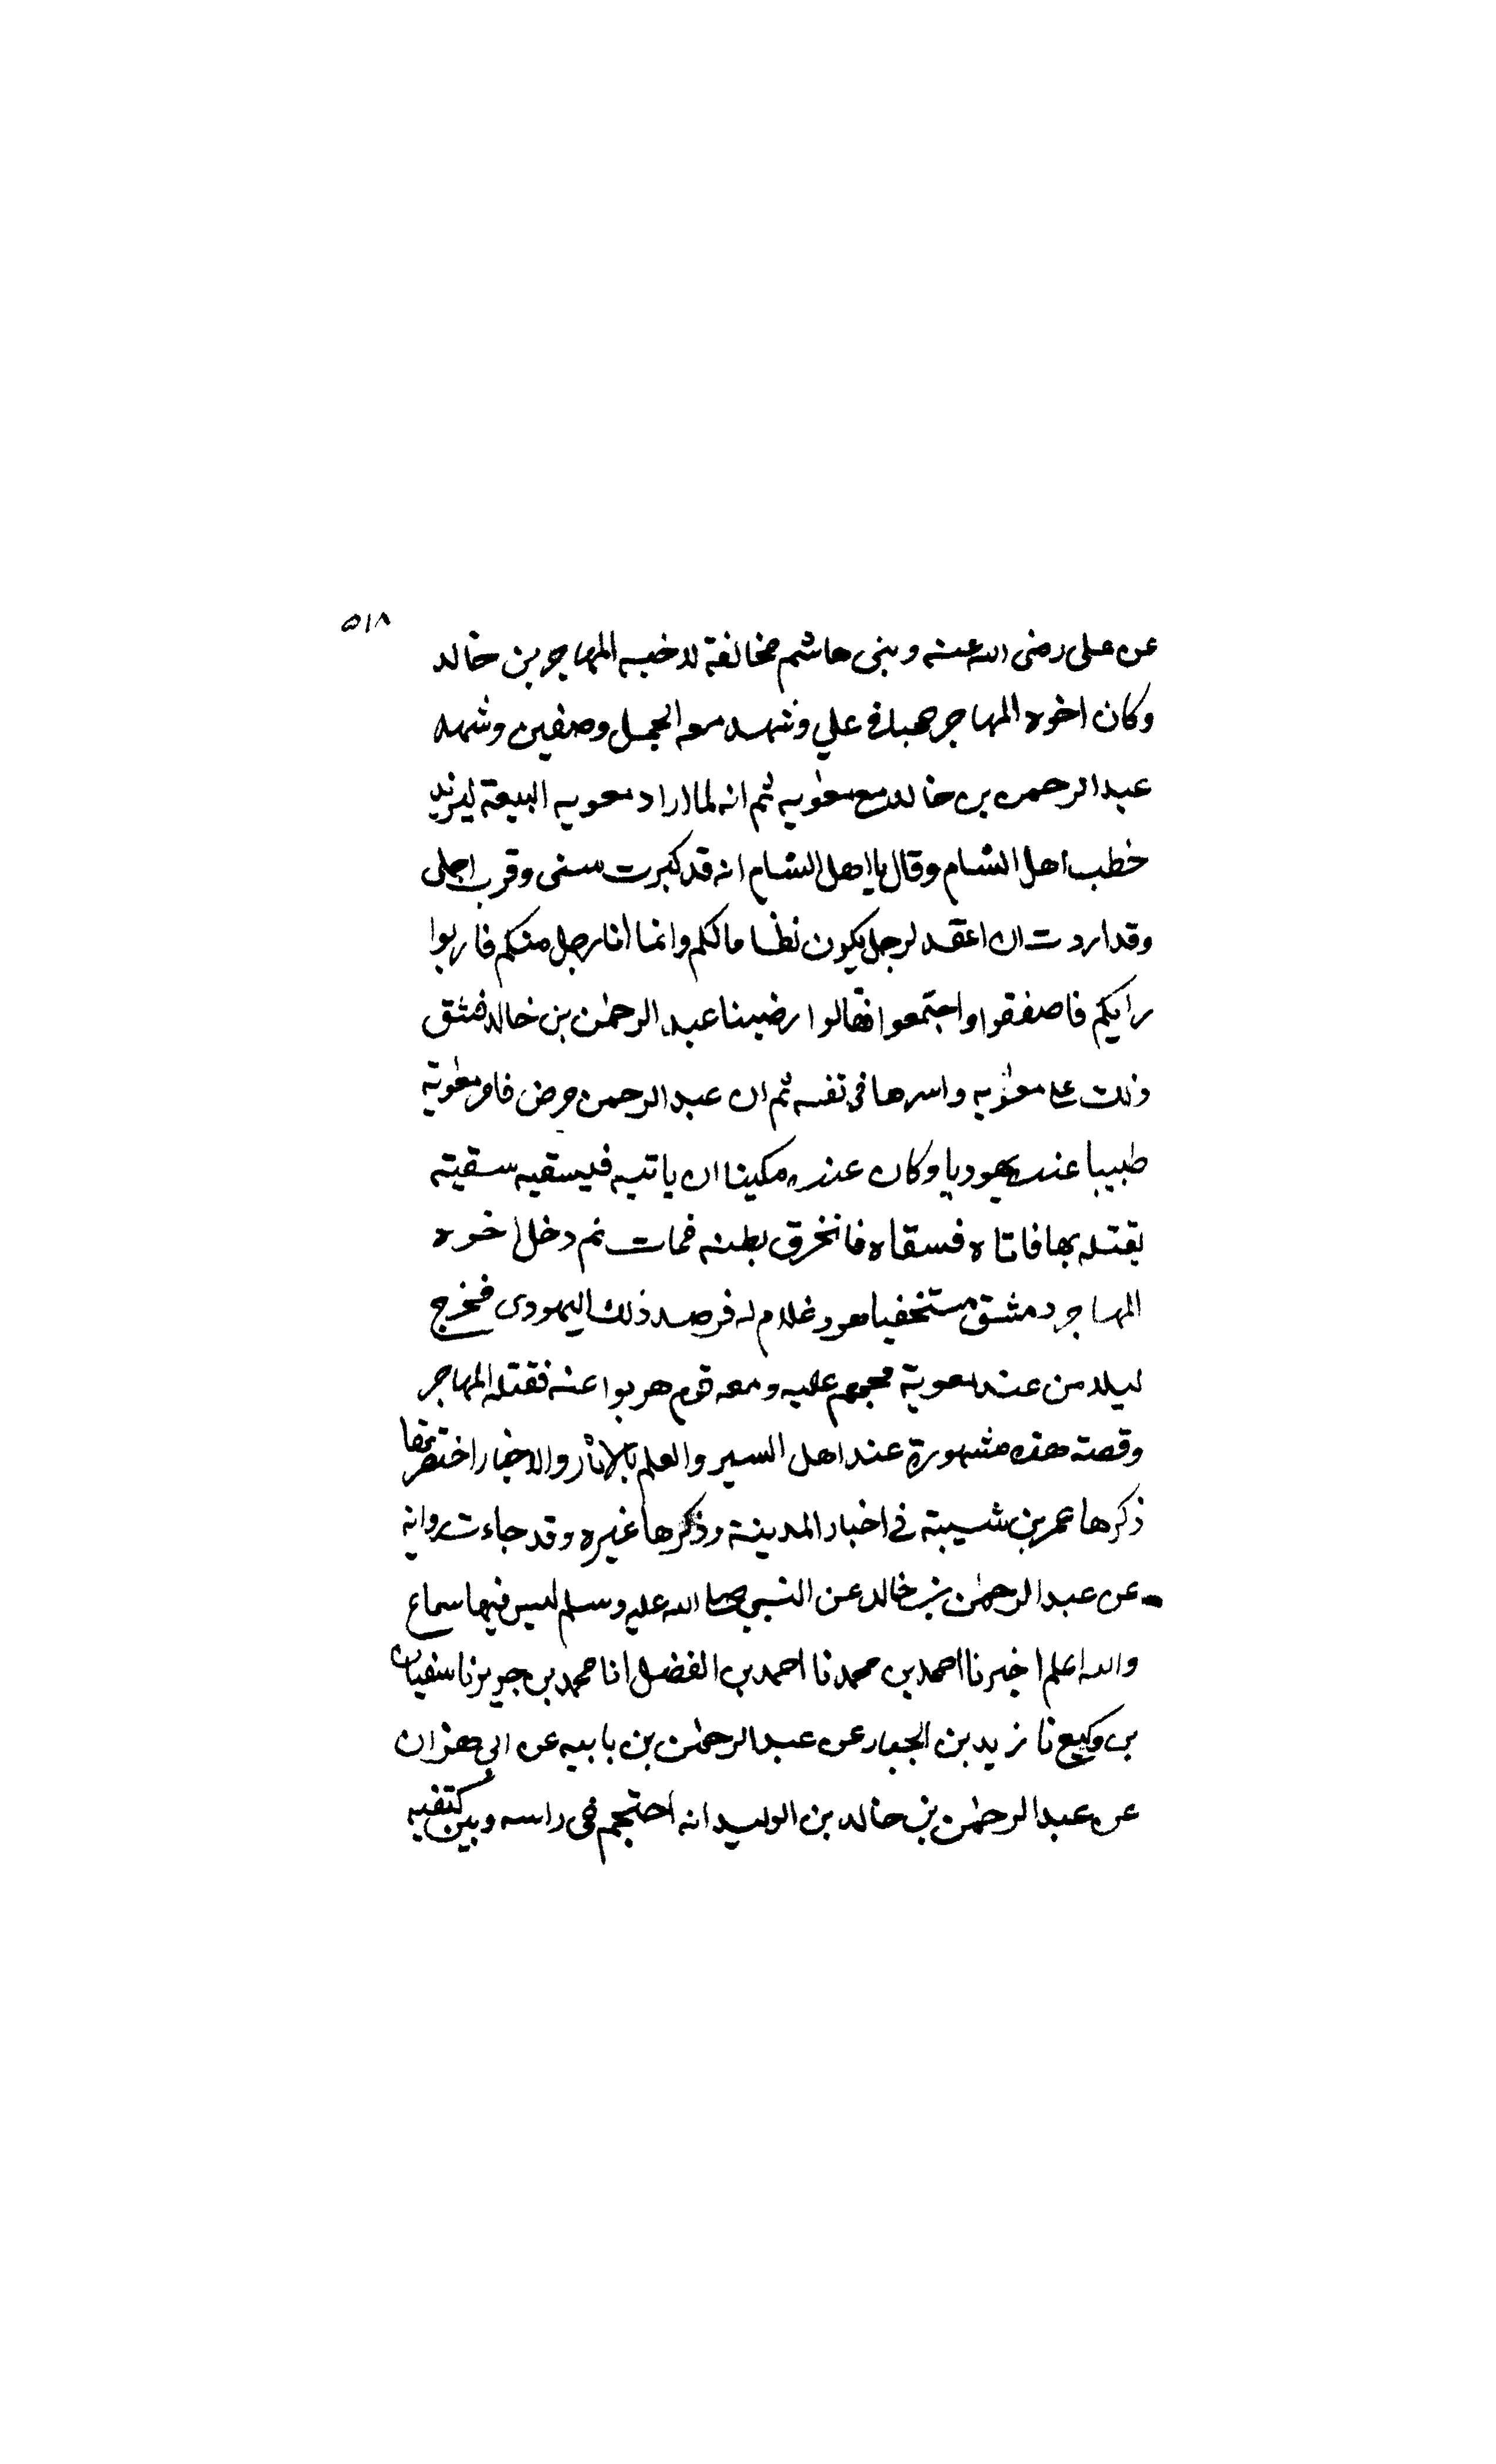 ٥١٨
عن على رضى الله عنه وبنى هاشم مخالفة لاخيه المهاجر بن خالد
وكان اخوه المهاجر محبا في علي وشهد معه الجمل وصفين وشهد
عبد الرحمن بن خالد مع معوية ثم انه لما اراد معوية البيعة ليزيد
خطب اهل الشام وقال يا اهل الشام انه قد كبرت سنى وقرب اجلى
وقد اردت ان اعقد لرجل يكون نظاما لكم وانما انا رجل منكم فاربوا
رايكم فاصفقوا واجتمعوا فقالوا رضينا عبد الرحمن بن خالد فشق
ذلك على معوية واسرها في نفسه ثم ان عبد الرحمن مرض فامر معوية
طبيبا عنده يهوديا وكان عنده مكينا ان ياتيه فيسقيه سقية
يقتله بها فاتاه فسقاه فانخرق بطنه فمات ثم دخل اخوه
المهاجر دمشق مستخفيا هو وغلام له فرصد ذلك اليهودى فخرج
ليلا من عند معوية فهجم عليه ومعه قوم هربوا عنه فقتله المهاجر
وقصته هذه مشهورة عند اهل السير والعلم بالاثار والاخبار اختصرتها
ذكرها عمر بن شيبة في اخبار المدينة وذكرها غيره وقد جاءت رواية
عن عبد الرحمن بن خالد عن النبي صلى الله عليه وسلم ليس فيها سماع
والله اعلم اخبرنا احمد بن محمد نا احمد بن الفضل انا محمد بن جرير نا سفيان
بن وكيع نا زيد بن الحباب عن عبد الرحمن بن بابيه عن ابي هزان
عن عبد الرحمن بن خالد بن الوليد انه احتجم في راسه وبين كتفيه